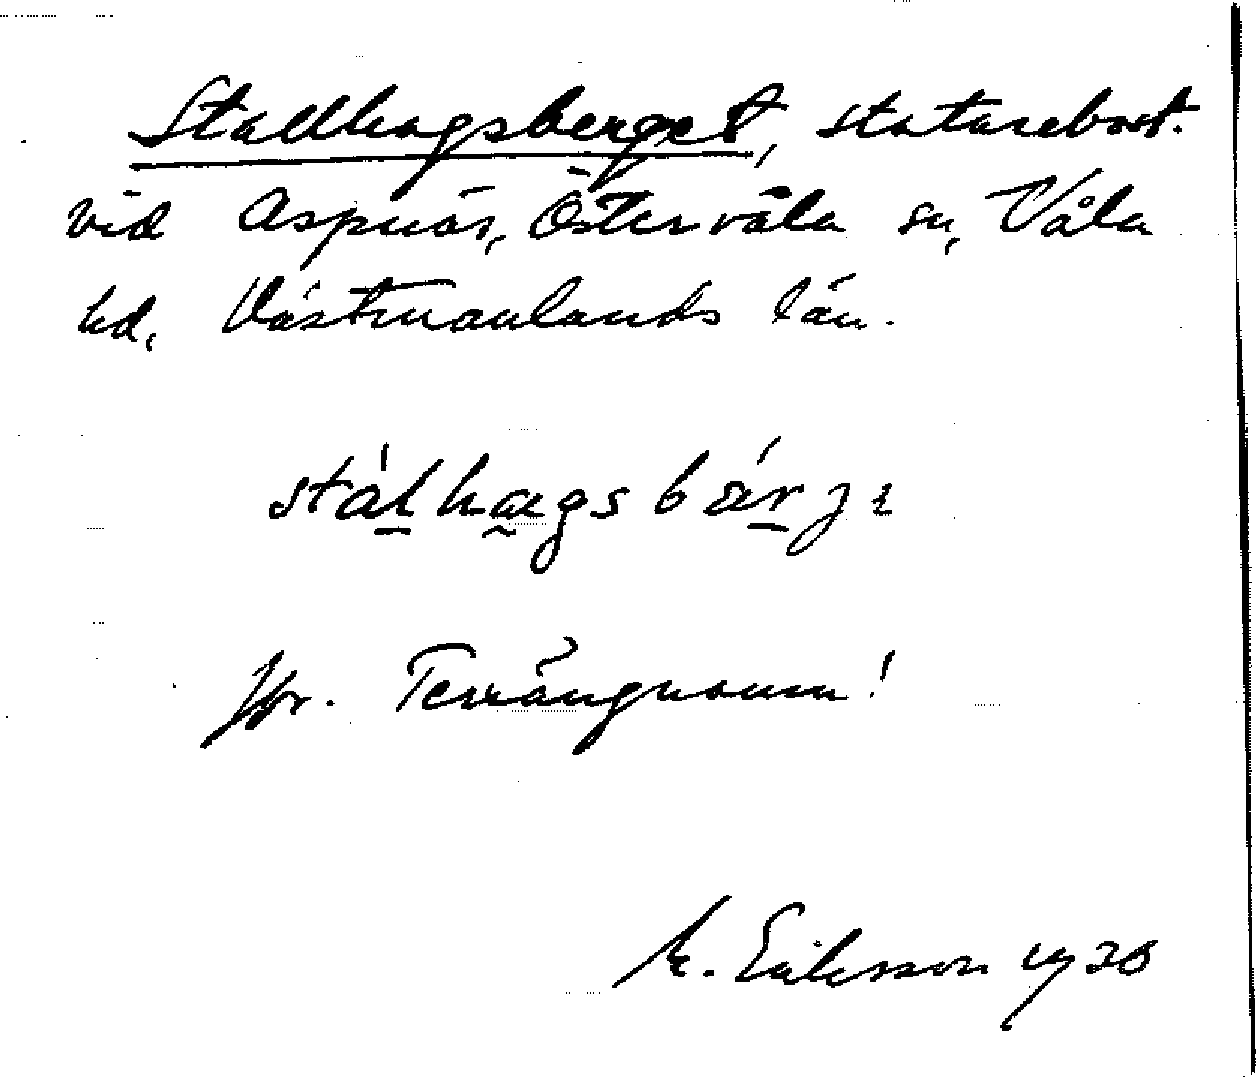 Stallhagsberget, statarebost.
vid Aspnäs, Östervåla sn, Våla
hd, Västmanlands län.
stálhagsbärjı
Jfr. Terrängnamn!
M. Eriksson